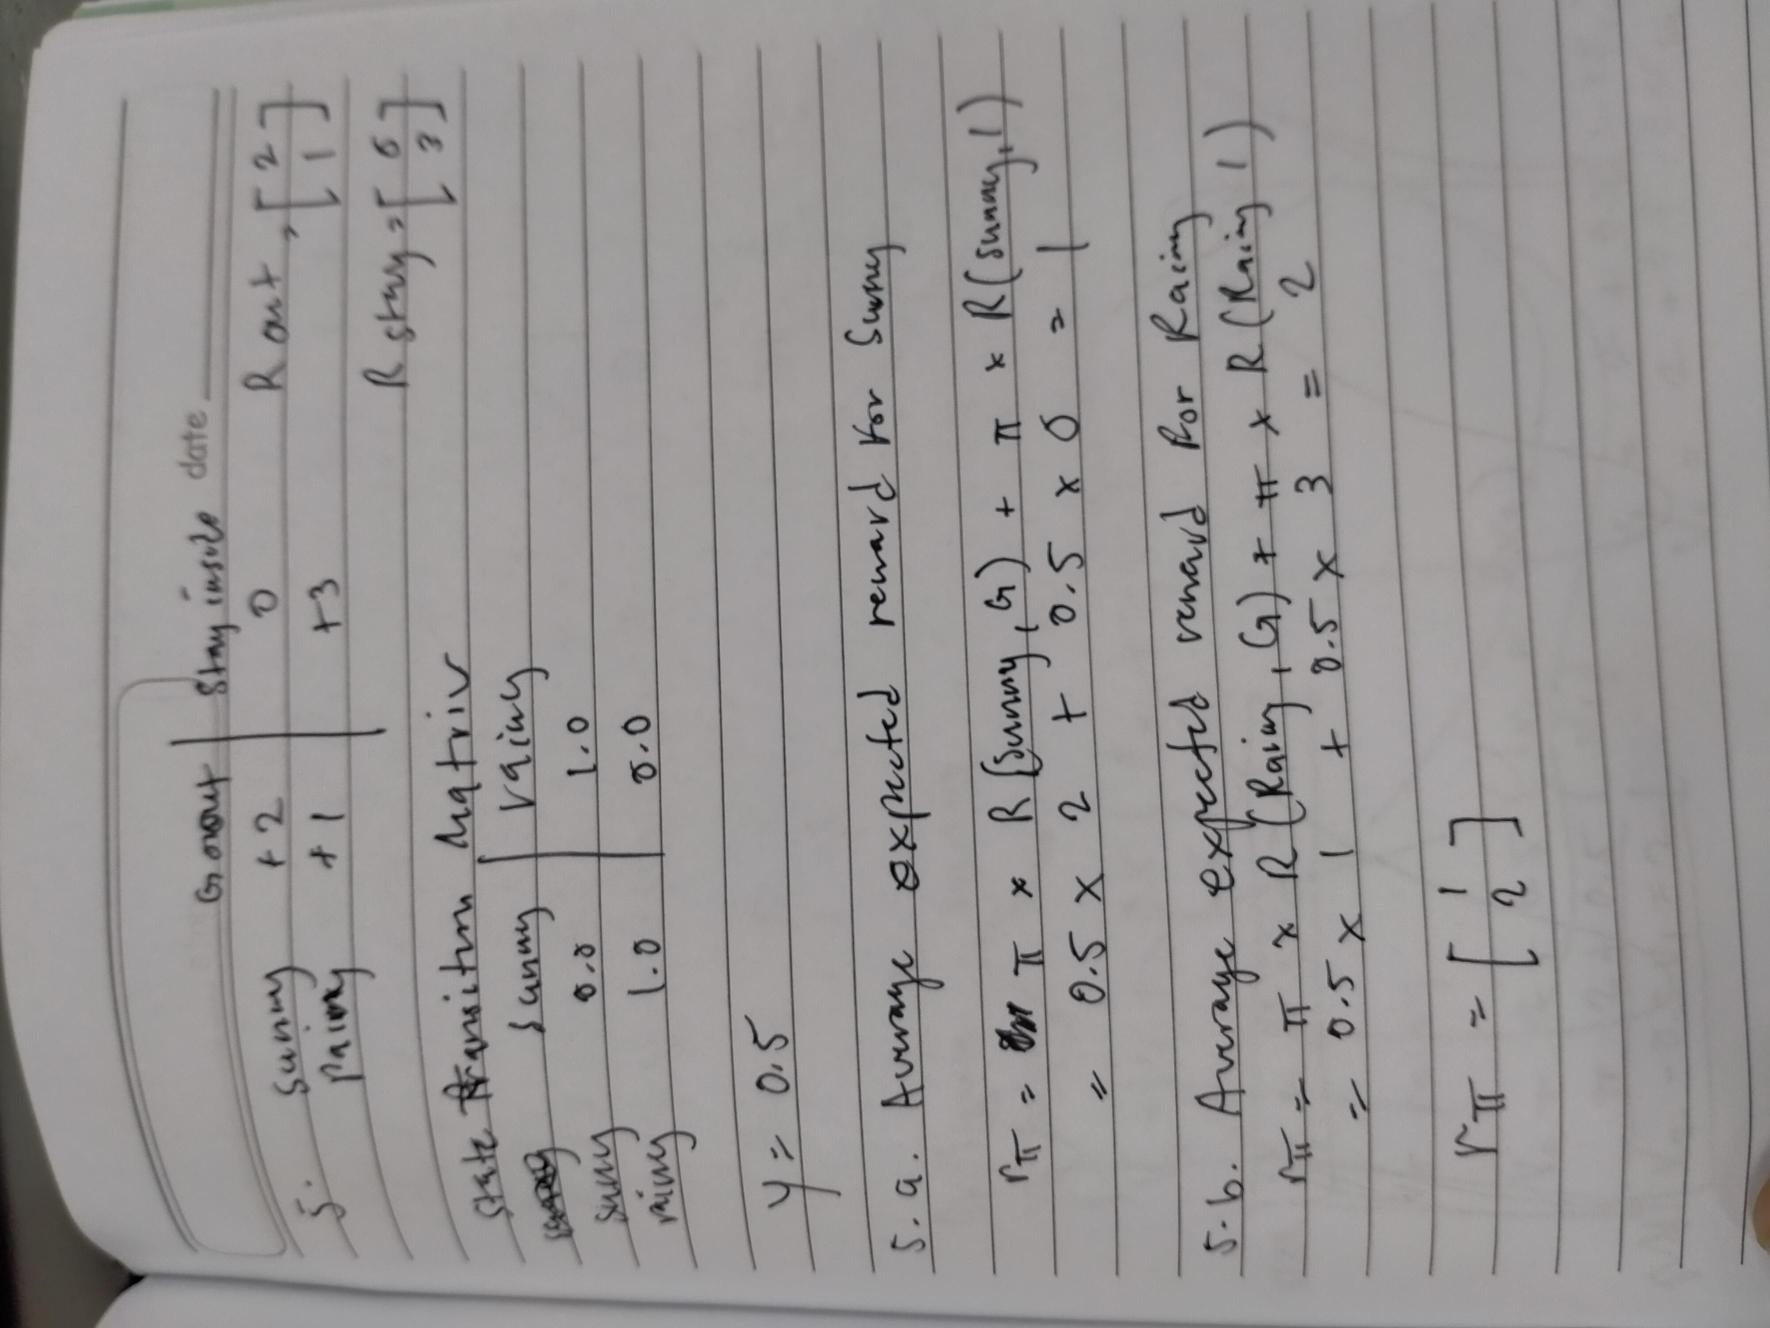 Go out | Stay inside date
5. Sunny +2 | 0 R out = [2
Rainy +1 | +3 1]
R stay = [0
3]
State Transition Matrix
Sunny | rainy
suny 0.0 | 1.0
rainy 1.0 | 0.0
γ = 0.5
5.a. Average expected reward for Sunny
rπ = π × R (Sunny, G) + π × R (sunny, I)
= 0.5 × 2 + 0.5 × 0 = 1
5.b. Average expected reward for Rainy
rπ = π × R (Rainy, G) + π × R (Rainy I)
= 0.5 × 1 + 0.5 × 3 = 2
rπ = [1
2]